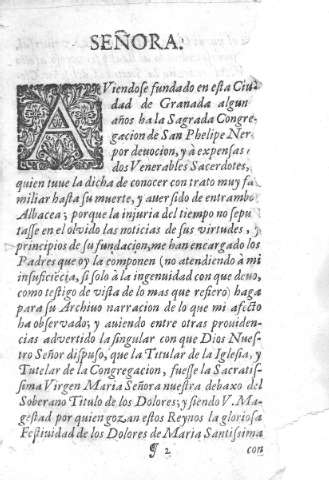 SEÑORA.
AViendose fundado en esta Ciudad
dad de Granada algun
años ha la Sagrada Congre-
gacion de San Phelipe Ner
por deuocion, y à expensas
dos Venerables Sacerdotes,
quien tuue la dicha de conocer con trato muy fa
miliar hasta su muerte, y auer sido de entrambo
Albacea; porque la injuria del tiempo no sepu
tasse en el oluido las noticias de sus virtudes, y
principios de su fundacion, me han encargado los
Padres que oy la componen (no atendiendo à mi
insuficiẽcia, si solo à la ingenuidad con que deuo,
como testigo de vista de lo mas que refiero) haga
para su Archiuo narracion de lo que mi afecto
ha obseruado; y auiendo entre otras prouiden-
cias advertido la singular con que Dios Nues-
tro Señor dispuso, que la Titular de la Iglesia, y
Tutelar de la Congregacion, fuesse la Sacratis-
sima Virgen Maria Señora nuestra debaxo del
Soberano Titulo de los Dolores; y siendo V. Ma-
gestad por quien gozan estos Reynos la gloriosa
Festiuidad de los Dolores de Maria Santissima
¶ 2 con